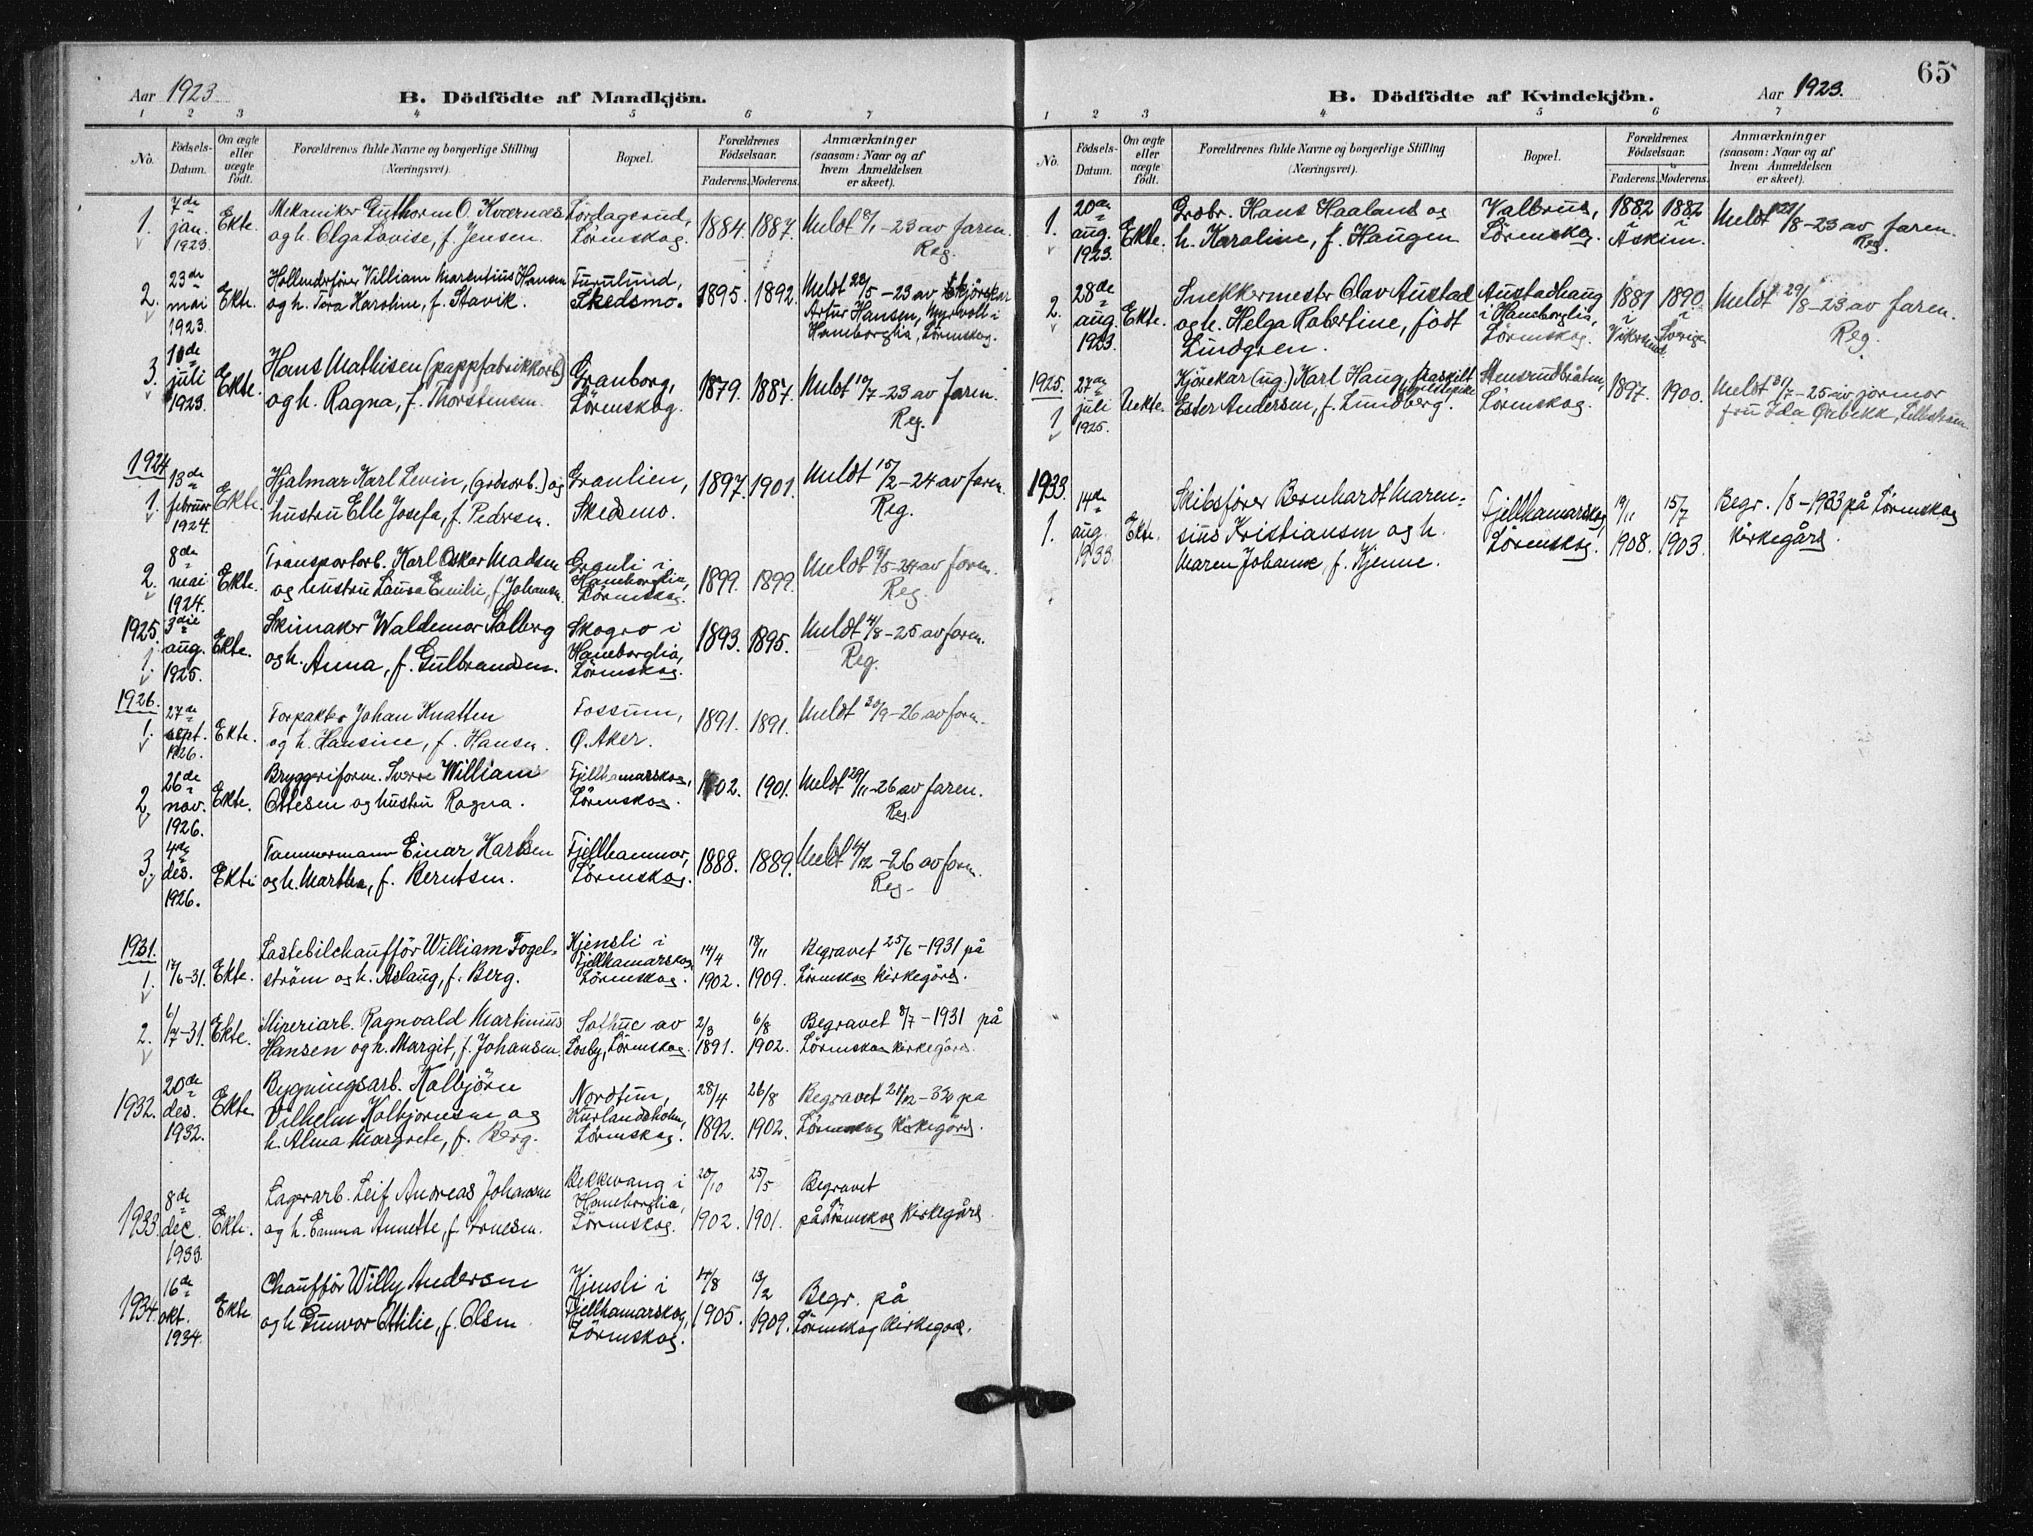 65
Aar 1923
B. Dödfödte af Mandkjön.
1 2 3 4 5 6 7
No.
Födsels-
Datum.
Om ægte
eller
uægte
født.
Forældrenes fulde Navne og borgerlige Stilling
(Næringsvei).
Bopæl.
Forældrenes
Födselsaar.
Faderens. Moderens.
Anmærkninger
(saasom: Naar og af
hvem Anmeldelsen
er skeet).
1. 7de jan. 1923. Ekte. Mekaniker Guthorm O. Kværnes
og h. Olga Lovise, f. Jensen.
Lørenskog.
1884. 1887. Meldt - 23 av faren.
Reg.
2. 23de mai 1923. Ekte. Hollenderfører William Marentius Hansen
og h. Tora Karoline, f. Stavik.
Furulund,
Skedsmo.
1895. 1892. Meldt 23/5 - 23 av Skjørskar
Artur Hansen, Myrvoll i
Haneborglia, Lørenskog.
3. 10de juli 1923. Ekte. Hans Mathisen (pappfabrikkarb.)
og h. Ragna, f. Thorstensen.
Granborg,
Lørenskog.
1879. 1887. Meldt 10/7 - 23 av faren.
Reg.
1924
1. 13de februar 1924. Ekte. Hjalmar Karl Levin, (godsarb.) og
hustru Elle Josefa, f. Pedersen.
Granlien,
Skedsmo.
1897. 1901. Meldt 15/2 - 24 av faren.
Reg.
2. 8de mai 1924. Ekte. Transportarb. Karl Oskar Madsen
og hustru Laura Emilie, f. Johansen.
Granli i
Haneborglia,
Lørenskog.
1899. 1899. Meldt 9/5 - 24 av faren.
Reg.
1925.
1. 3die aug. 1925. Ekte. Skimaker Waldemar Solberg
og h. Anna, f. Gulbrandsen.
Skogro i
Haneborglia,
Lørenskog.
1893. 1895. Meldt 4/8 - 25 av faren.
Reg.
1926.
1. 27de sept. 1926. Ekte. Forpakter Johan Knatten
og h. Hansine, f. Hansen.
Fossum,
Ø. Aker.
1891. 1891. Meldt 30/9 - 26 av faren.
2. 26de nov. 1926. Ekte. Bryggeriform. Sverre William
Ottesen og hustru Ragna.
Fjellhamarskog,
Lørenskog.
1902. 1901. Meldt 29/11 - 26 av faren.
Reg.
3. 4de des. 1926. Ekte. Tømmermann Einar Karlsen
og h. Martha, f. Berntsen.
Fjellhammar,
Lørenskog.
1888. 1889. Meldt 4/12 - 26 av faren.
Reg.
1931.
1. 17/6-31. Ekte. Lastebilchauffør William Fogel-
strøm og h. Aslaug, f. Berg.
Kjensli i
Fjellhamarskog,
Lørenskog.
14/4 1902. 18/11 1909. Begravet 25/6 - 1931 på
Lørenskog kirkegård.
2. 6/7-31. Ekte. Sliperiarb. Ragnvald Martinius
Hansen og h. Margit, f. Johansen.
Sothue av
Losby, Lørenskog.
2/3 1891. 6/8 1902. Begravet 8/7 - 1931 på
Lørenskog kirkegård.
1932. 20de des. 1932. Ekte Bygningsarb. Kolbjørn
Vilhelm Kolbjørnsen og
h. Alma Margrete, f. Berg.
Nordtun,
Kurlandsholm,
Lørenskog.
28/4 1892. 26/8 1902. Begravet 21/12 - 32 på
Lørenskog kirkegård.
1933. 8de dec. 1933. Ekte. Lagerarb. Leif Andreas Johansen
og h. Emma Annette, f. Arnesen.
Bekkevang i
Haneborglia,
Lørenskog.
20/10 1902. 25/5 1901. Begravet
på Lørenskog kirkegård
1934. 16de okt. 1934. Ekte Chauffør Willy Andersen
og h. Gunvor Ottilie, f. Olsen
Kjensli i
Fjellhamarskog,
Lørenskog.
1905. 13/2 1909. Begr. på
Lørenskog kirkegård.
B. Dödfödte af Kvindekjön.
Aar 1923.
1 2 3 4 5 6 7
No.
Födsels-
Datum.
Om ægte
eller
uægte
født.
Forældrenes fulde Navne og borgerlige Stilling
(Næringsvei).
Bopæl.
Forældrenes
Födselsaar.
Faderens. Moderens.
Anmærkninger
(saasom: Naar og af
hvem Anmeldelsen
er skeet).
1. 20de aug. 1923. Ekte. Grobr. Hans Haaland og
h. Karoline, f. Haugen
Valbrud,
Lørenskog.
1882 i Askim. 1882 Meldt 22/8 - 23 av faren.
Reg.
2. 28de aug. 1923. Ekte. Snekkermester Olav Austad
og h. Helga Robertine, født
Lindgren.
Austadhaug
i Haneborglia,
Lørenskog.
1881 i Vikersund 1890 i Sverige Meldt 29/8 - 23 av faren.
Reg.
1925.
1 27de juli 1925. Uekte. Kjørekar (ug.) Karl Haug, fraskilt
Ester Andersen, f. Lundberg.
Stensrudbråten,
Lørenskog.
1897. 1900. Meldt 31/7 - 25 av jormor
fru Ida Ørbekk, Lillestrøm
1933.
1. 14de aug. 1933. Ekte. Skibsfører Bernhardt Maren-
sius Kristiansen og h.
Maren Johanne, f. Kjenne.
Fjellhamarskog
Lørenskog.
19/11 1908. 15/7 1903. Begr. /8 - 1933 på Lørenskog
kirkegård.